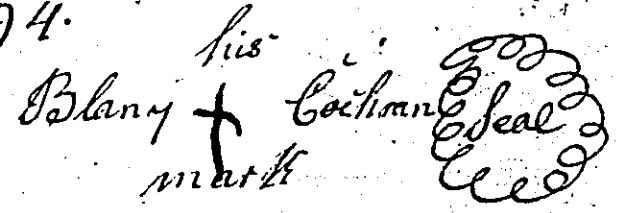 94.
his
Blany + Cochran Seal
mark